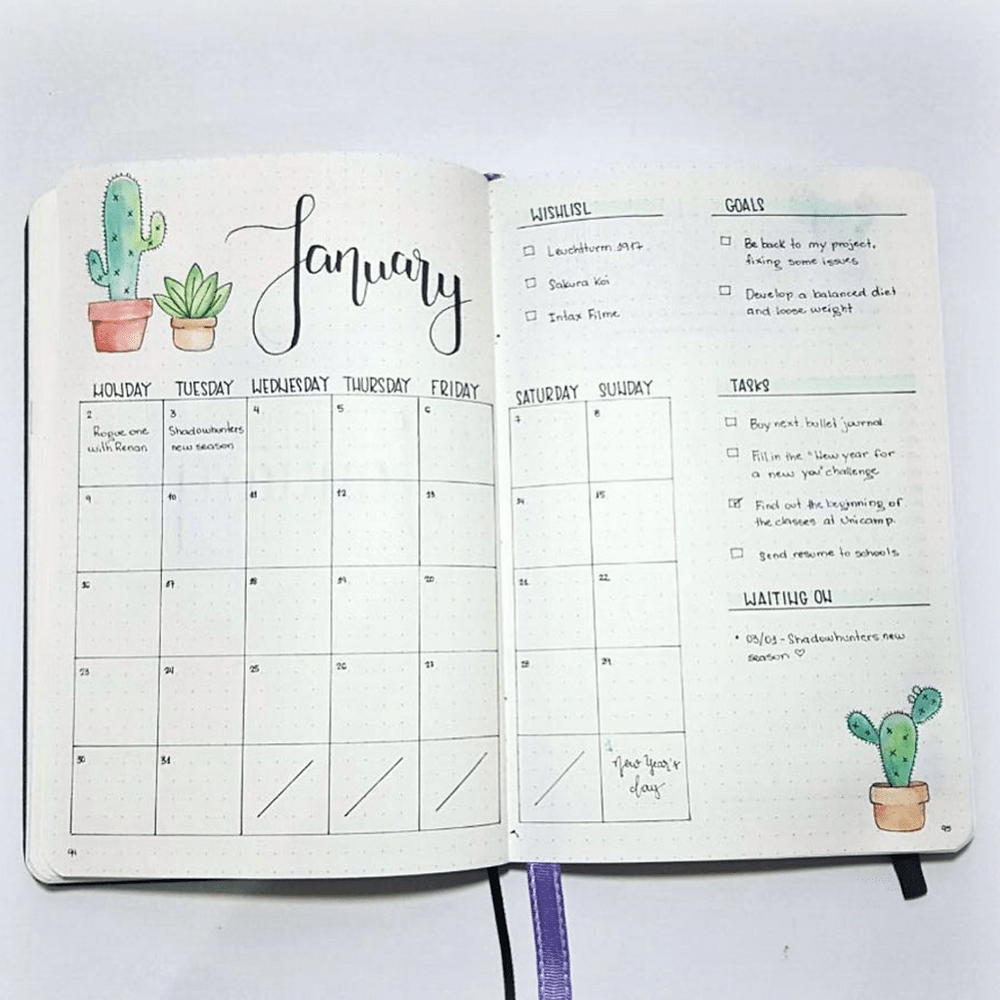 January
MONDAY TUESDAY WEDNESDAY THURSDAY FRIDAY
2 3 4 5 6
Rogue one Shadowhunters
with Renan new season
9 10 11 12 13
16 17 18 19 20
23 24 25 26 27
30 31
94
WISHLIST
Leuchtturm 1917
Sakura Koi
Intax Filme
GOALS
Be back to my project,
fixing some issues
Develop a balanced diet
and loose weight
SATURDAY SUNDAY
7 8
14 15
21 22
28 29
1
New Year's
day
TASKS
Buy next bullet journal
Fill in the "New year for
a new you" challenge
Find out the beginning of
the classes at Unicamp.
Send resume to schools
WAITING ON
• 03/01 - Shadowhunters new
season ♡
95